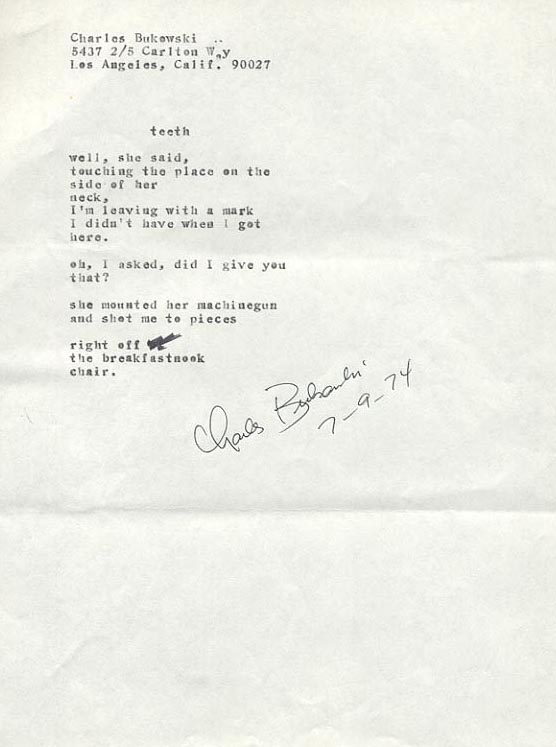 Charles Bukowski ..
5437 2/5 Carlton Way
Los Angeles, Calif. 90027
teeth
well, she said,
touching the place on the
side of her
neck,
I'm leaving with a mark
I didn't have when I got
here.
oh, I asked, did I give you
that?
she mounted her machinegun
and shot me to pieces
right off
the breakfastnook
chair.
Charles Bukowski
7-9-74